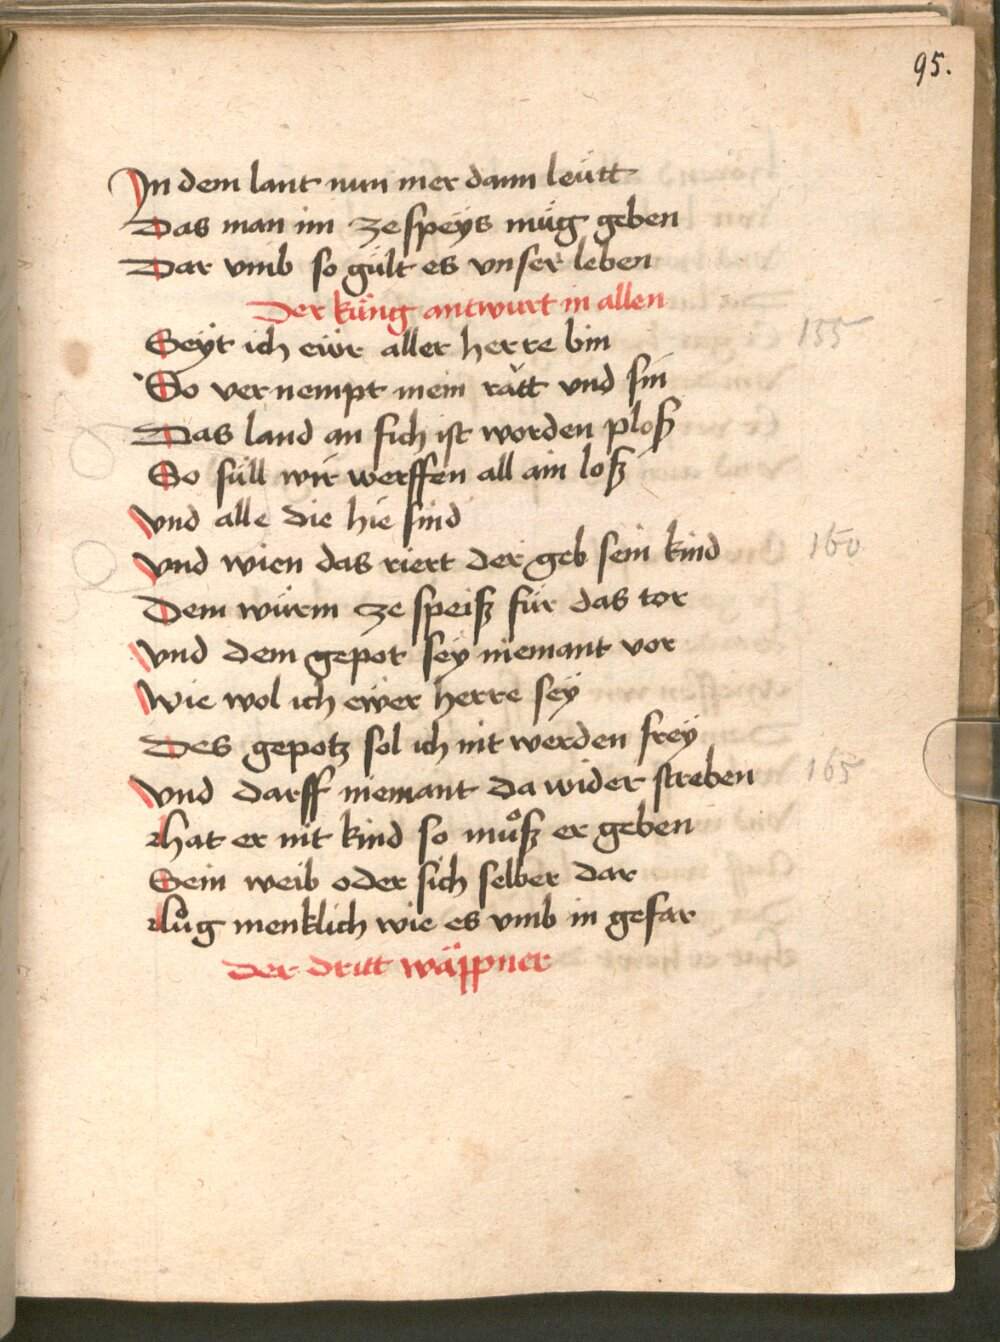 95.
In dem lant nun mer dann leütt
Das man im ze speÿs müg geben
Dar vmb so gült es vnser leben
Der küng antwurt in allen
Seÿt ich eẅr aller herre bin
155
So ver nempt mein rätt vnd sin
Das land an sich ist worden ploß
So süll wir werffen all ain loß
Vnd alle die hie sind
Vnd wien das riert der geb sein kind
160
Dem würm ze speiß für das tor
Vnd dem gepot seÿ niemant vor
Wie wol ich eẅer herre seÿ
Des gepotz sol ich nit werden freÿ
Vnd darff niemant da wider streben
165
Hat er nit kind so muͦß er geben
Sein weib oder sich selber dar
Luͦg menklich wie es vmb in gefar
Der dritt wäppner